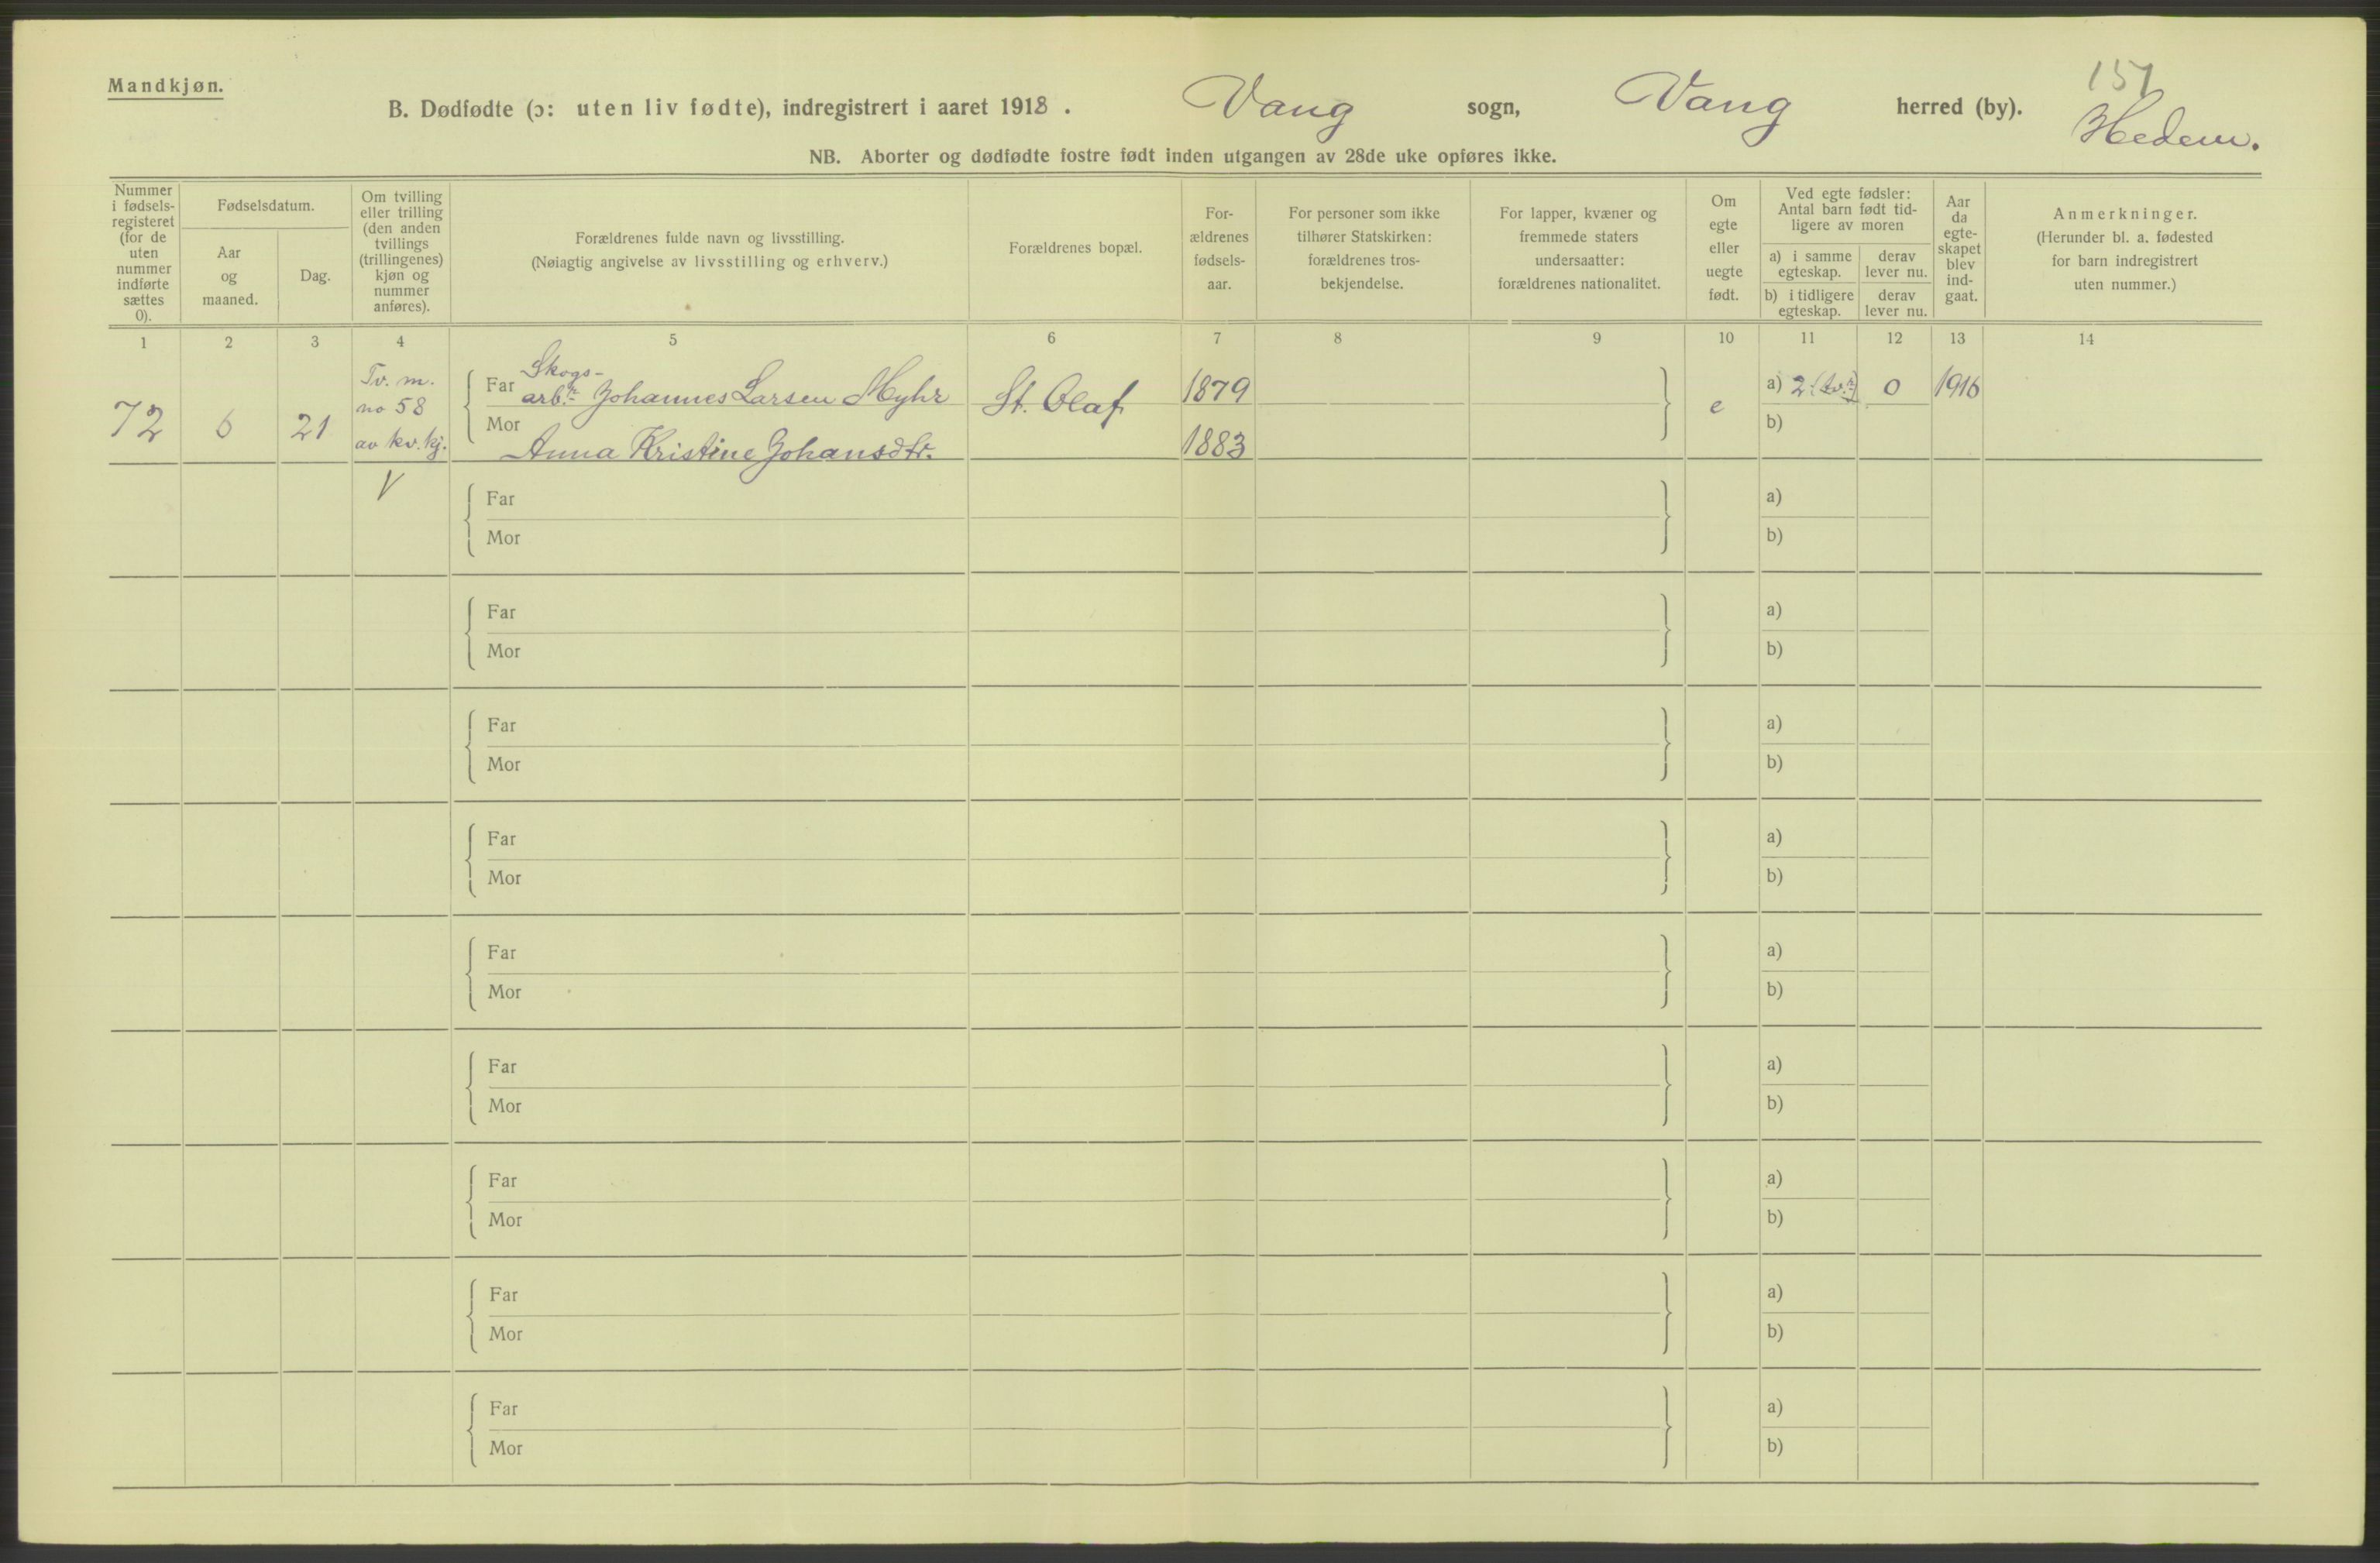 Mandkjøn.
151
B. Dødfødte (ɔ: uten liv fødte), indregistrert i aaret 1918. Vang sogn, Vang herred (by).
Hedem.
NB. Aborter og dødfødte fostre født inden utgangen av 28de uke opføres ikke.
Nummer
i fødsels-
registeret
(for de
uten
nummer
indførte
sættes
0).
Fødselsdatum.
Aar
og
maaned.
Dag.
Om tvilling
eller trilling
(den anden
tvillings
(trillingenes)
kjøn og
nummer
anføres).
Forældrenes fulde navn og livsstilling.
(Nøiagtig angivelse av livsstilling og erhverv.)
Forældrenes bopæl.
For-
ældrenes
fødsels-
aar.
For personer som ikke
tilhører Statskirken:
forældrenes tros-
bekjendelse.
For lapper, kvæner og
fremmede staters
undersaatter:
forældrenes nationalitet.
Om
egte
eller
uegte
født.
Ved egte fødsler:
Antal barn født tid-
ligere av moren
a) i samme
egteskap.
derav
lever nu.
b) i tidligere
egteskap.
derav
lever nu.
Aar
da
egte-
skapet
blev
ind-
gaat.
Anmerkninger.
(Herunder bl. a. fødested
for barn indregistrert
uten nummer.)
1 2 3 4 5 6 7 8 9 10 11 12 13 14
72
6
21
Tv. m.
no 58
av kv. kj.
V
Skogs-
Far arbr. Johannes Larsen Myhr
Mor
Anna Kristine Johansdtr.
St. Olaf
1879
1883
e
a) 2 (tv.r) 0 1916
b)
Far a)
Mor b)
Far a)
Mor b)
Far a)
Mor b)
Far a)
Mor b)
Far a)
Mor b)
Far a)
Mor b)
Far a)
Mor b)
Far a)
Mor b)
Far a)
Mor b)